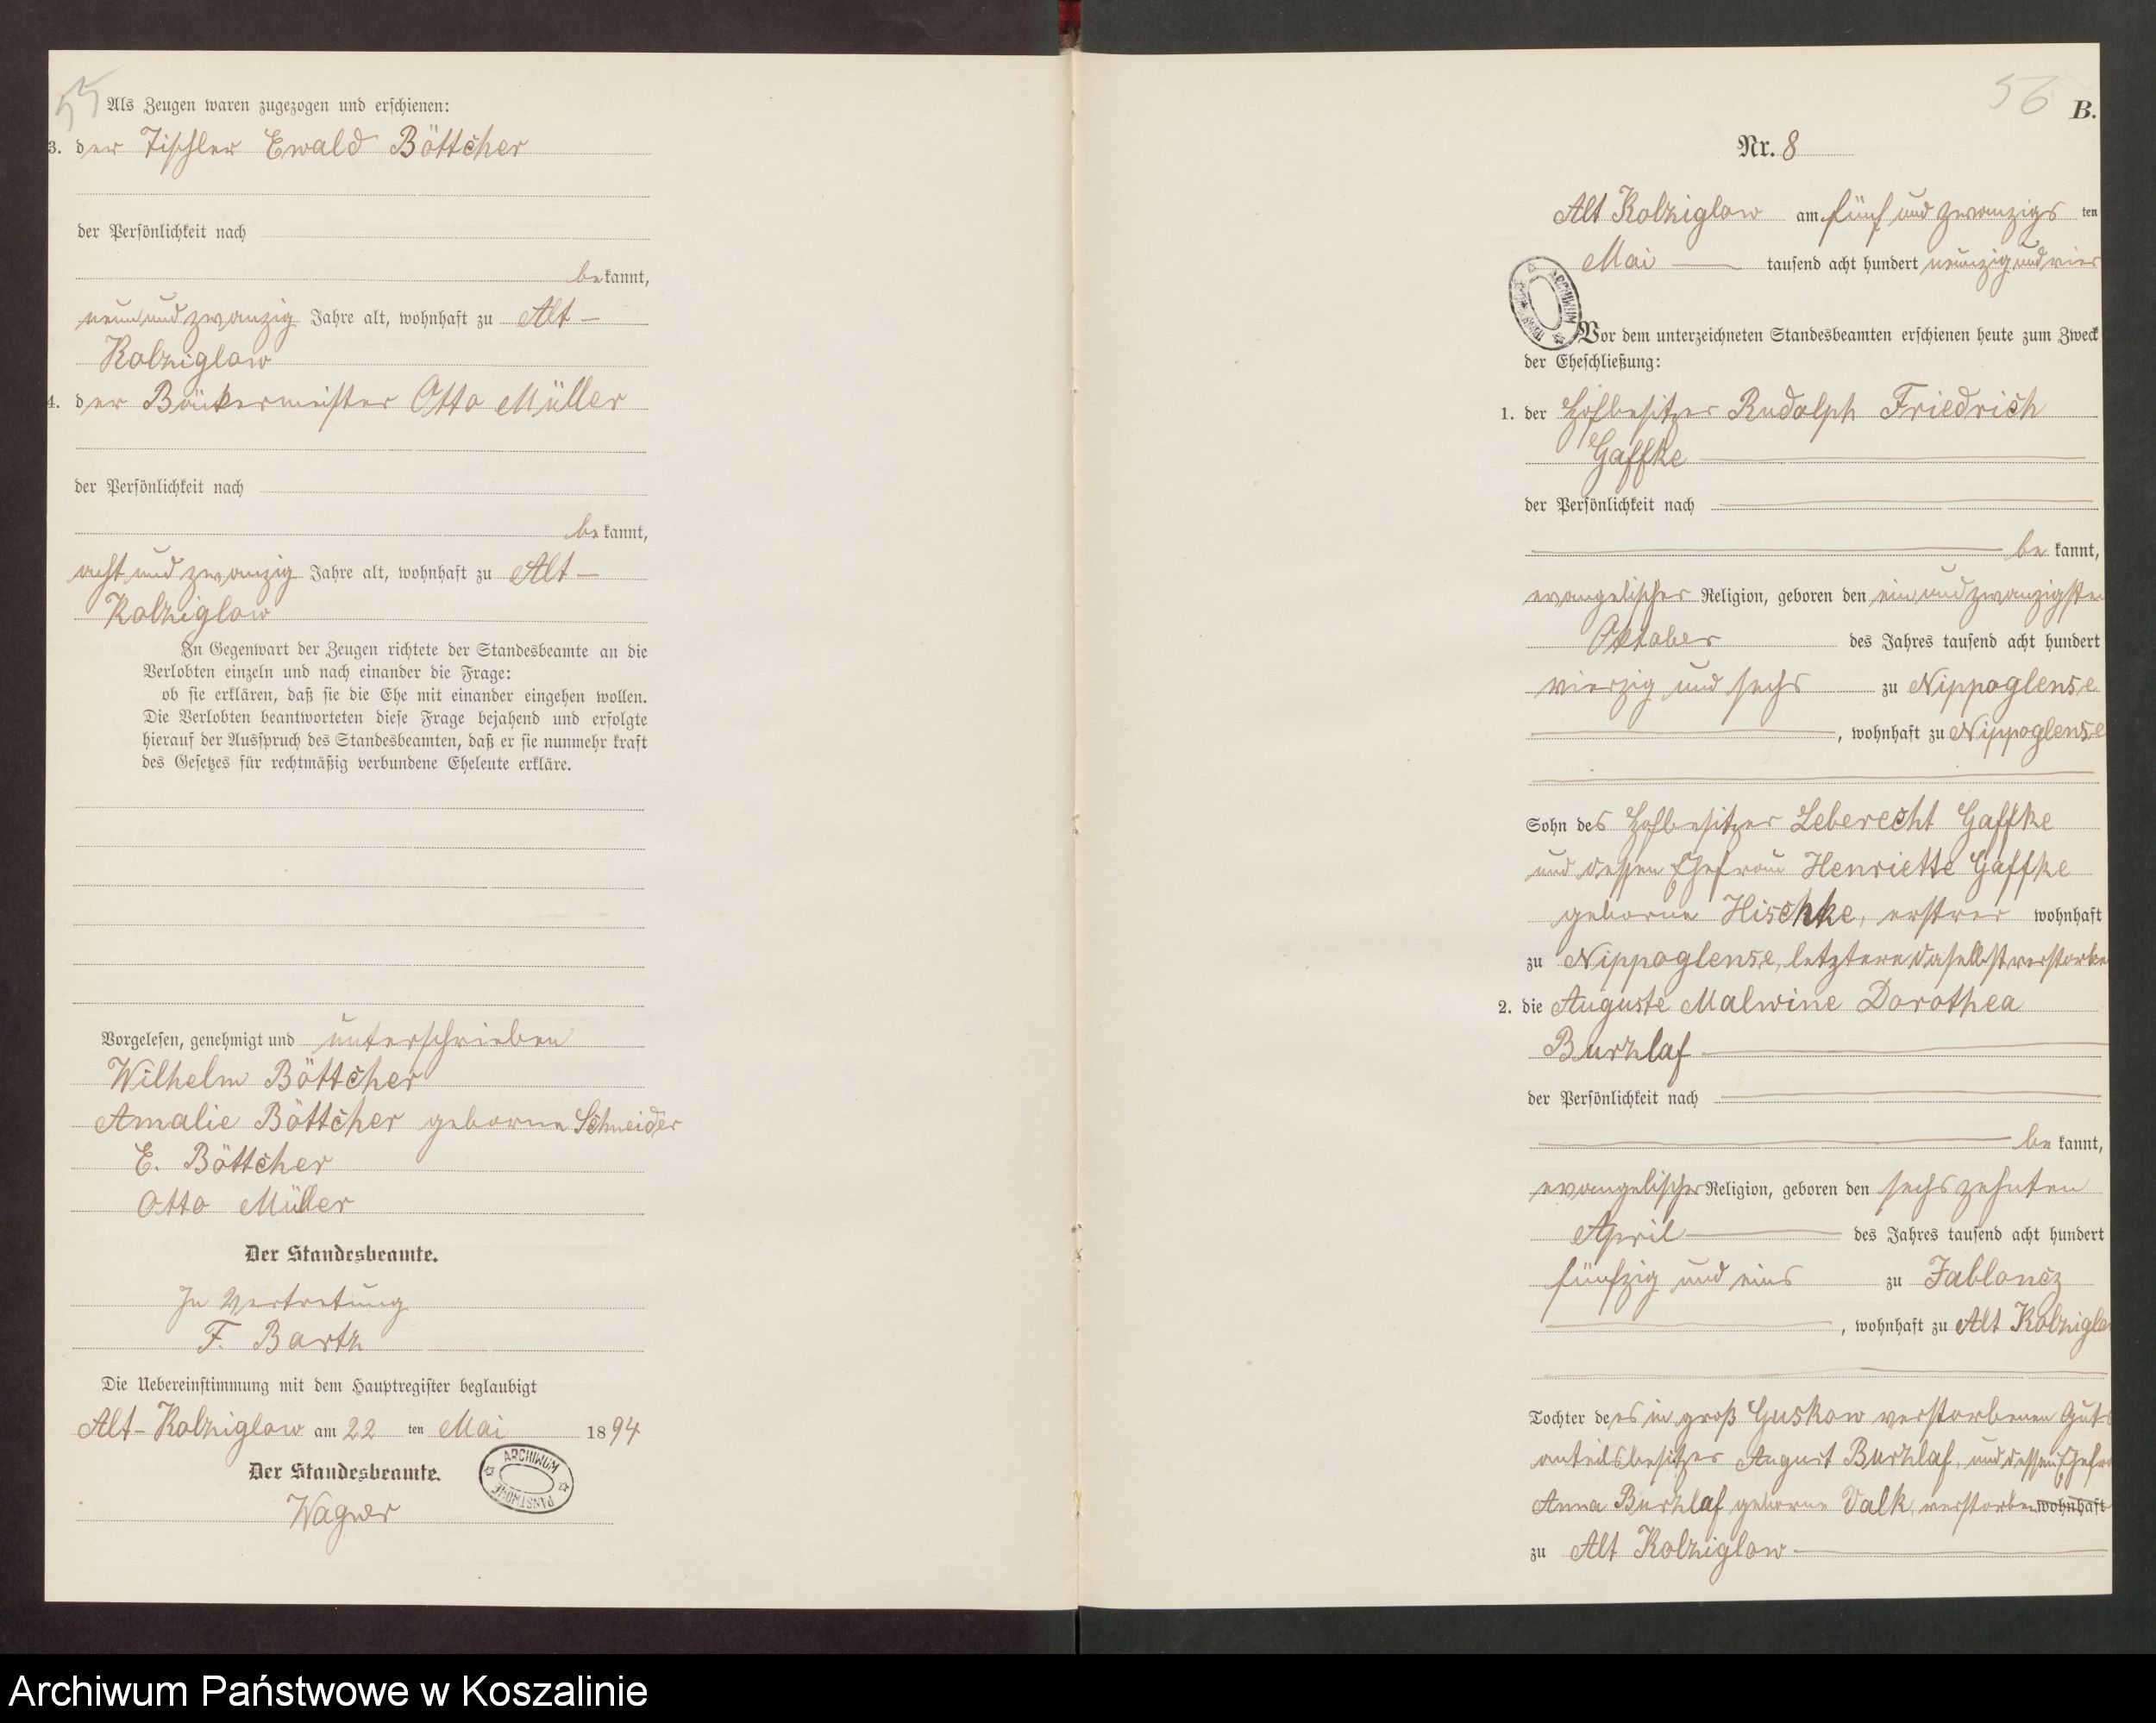 55
Als Zeugen waren zugezogen und erschienen:
3. der Tischler Ewald Böttcher
der Persönlichkeit nach
bekannt,
neun und zwanzig Jahre alt, wohnhaft zu Alt-
Kolziglow
4. der Bäckermeister Otto Müller
der Persönlichkeit nach
bekannt,
acht und zwanzig Jahre alt, wohnhaft zu Alt-
Kolziglow
In Gegenwart der Zeugen richtete der Standesbeamte an die
Verlobten einzeln und nach einander die Frage:
ob sie erklären, daß sie die Ehe mit einander eingehen wollen.
Die Verlobten beantworteten diese Frage bejahend und erfolgte
hierauf der Ausspruch des Standesbeamten, daß er sie nunmehr kraft
des Gesetzes für rechtmäßig verbundene Eheleute erkläre.
Vorgelesen, genehmigt und unterschrieben
Wilhelm Böttcher
Amalie Böttcher geborne Schneider
E. Böttcher
Otto Müller
Der Standesbeamte.
In Vertretung
F. Bartz
Die Uebereinstimmung mit dem Hauptregister beglaubigt
Alt-Kolziglow am 22 ten Mai 1894
Der Standesbeamte.
Wagner
ARCHIWUM PAŃSTWOWE
56
B.
Nr. 8
Alt Kolziglow am fünf und zwanzigs ten
Mai tausend acht hundert neunzig und vier
ARCHIWUM PAŃSTWOWE
Vor dem unterzeichneten Standesbeamten erschienen heute zum Zweck
der Eheschließung:
1. der Hofbesitzer Rudolph Friedrich
Gaffke
der Persönlichkeit nach
be kannt,
evangelischer Religion, geboren den ein und zwanzigsten
Oktober des Jahres tausend acht hundert
vierzig und sechs zu Nippoglense
, wohnhaft zu Nippoglense
Sohn des Hofbesitzer Leberecht Gaffke
und dessen Ehefrau Henriette Gaffke
geborne Hischke, erstrer wohnhaft
zu Nippoglense, letztere daselbst verstorben
2. die Auguste Malwine Dorothea
Burzlaf
der Persönlichkeit nach
be kannt,
evangelischer Religion, geboren den sechszehnten
April des Jahres tausend acht hundert
fünfzig und eins zu Jabloncz
, wohnhaft zu Alt Kolziglow
Tochter des in groß Guskow verstorbenen Guts
anteilsbesitzer August Burzlaf, und dessen Ehefrau
Anna Burzlaf geborne Valk, verstorben wohnhaft
zu Alt Kolziglow
Archiwum Państwowe w Koszalinie